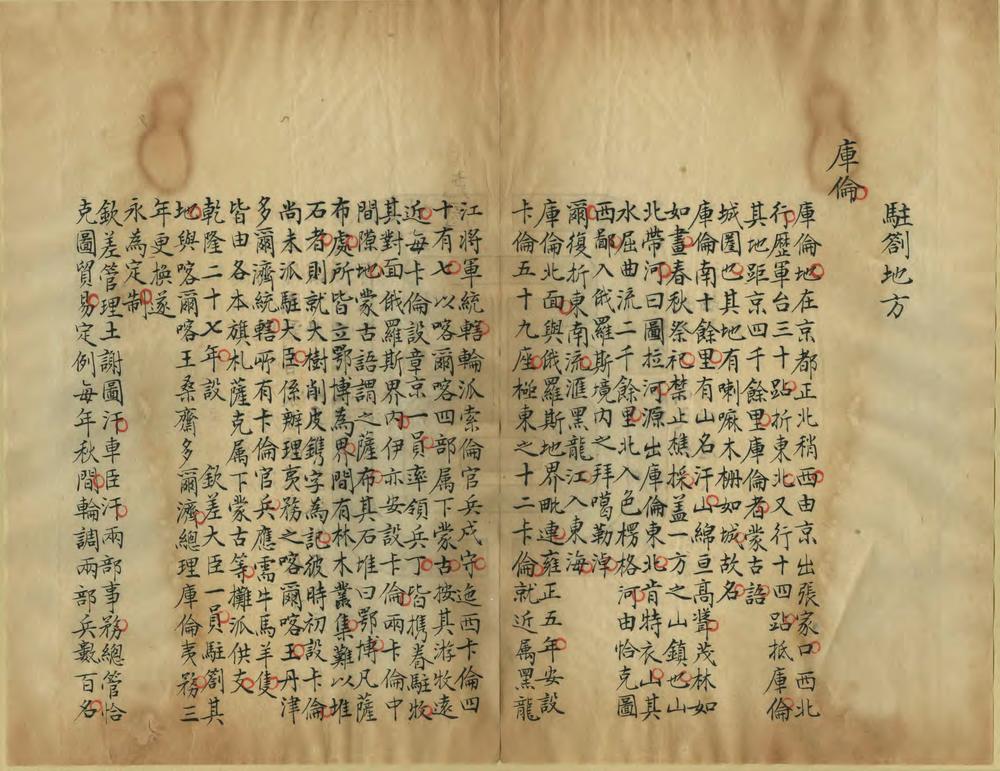 駐劄地方
庫倫
庫倫地在京都正北稍西由京出張家口西北
行歷軍台三十跕折東北又行十四跕抵庫倫
其地距京四千餘里庫倫者蒙古語
城圈也其地有喇嘛木柵如城故名
庫倫南十餘里有山名汗山綿亘高聳茂林如
如畫春秋祭祀禁止樵採盖一方之山鎮也山
北帶河曰圖拉河源出庫倫東北肯特衣山其
水屈曲流二千餘里北入色楞格河由恰克圖
西鄙入俄羅斯境內之拜噶勒淖
爾復折東南流滙黑龍江入東海
庫倫北面與俄羅斯地界毗連雍正五年安設
卡倫五十九座極東之十二卡倫就近属黑龍
江將軍統轄輪派索倫官兵戍守迤西卡倫四
十有七以喀爾喀四部属下蒙古按其游牧遠
近每卡倫設章京一員率領兵丁皆携眷駐牧
其對面俄羅斯界內伊亦安設卡倫兩卡倫中
間隙地蒙古語謂之薩布其石堆曰鄂博凡薩
布處所皆立鄂博為界間有林木叢集難以堆
石者則就大樹削皮鐫字為記彼時初設卡倫
尚未派駐大臣係辦理夷務之喀爾喀王丹津
多爾濟統轄所有卡倫官兵應需牛馬羊隻
皆由各本旗札薩克属下蒙古等攤派供支
乾隆二十七年設 欽差大臣一員駐劄其
地與喀爾喀王桑齋多爾濟總理庫倫夷務三
年更換遂
永為定制
欽差管理土謝圖汗車臣汗兩部事務總管恰
克圖貿易定例每年秋間輪調兩部兵數百名